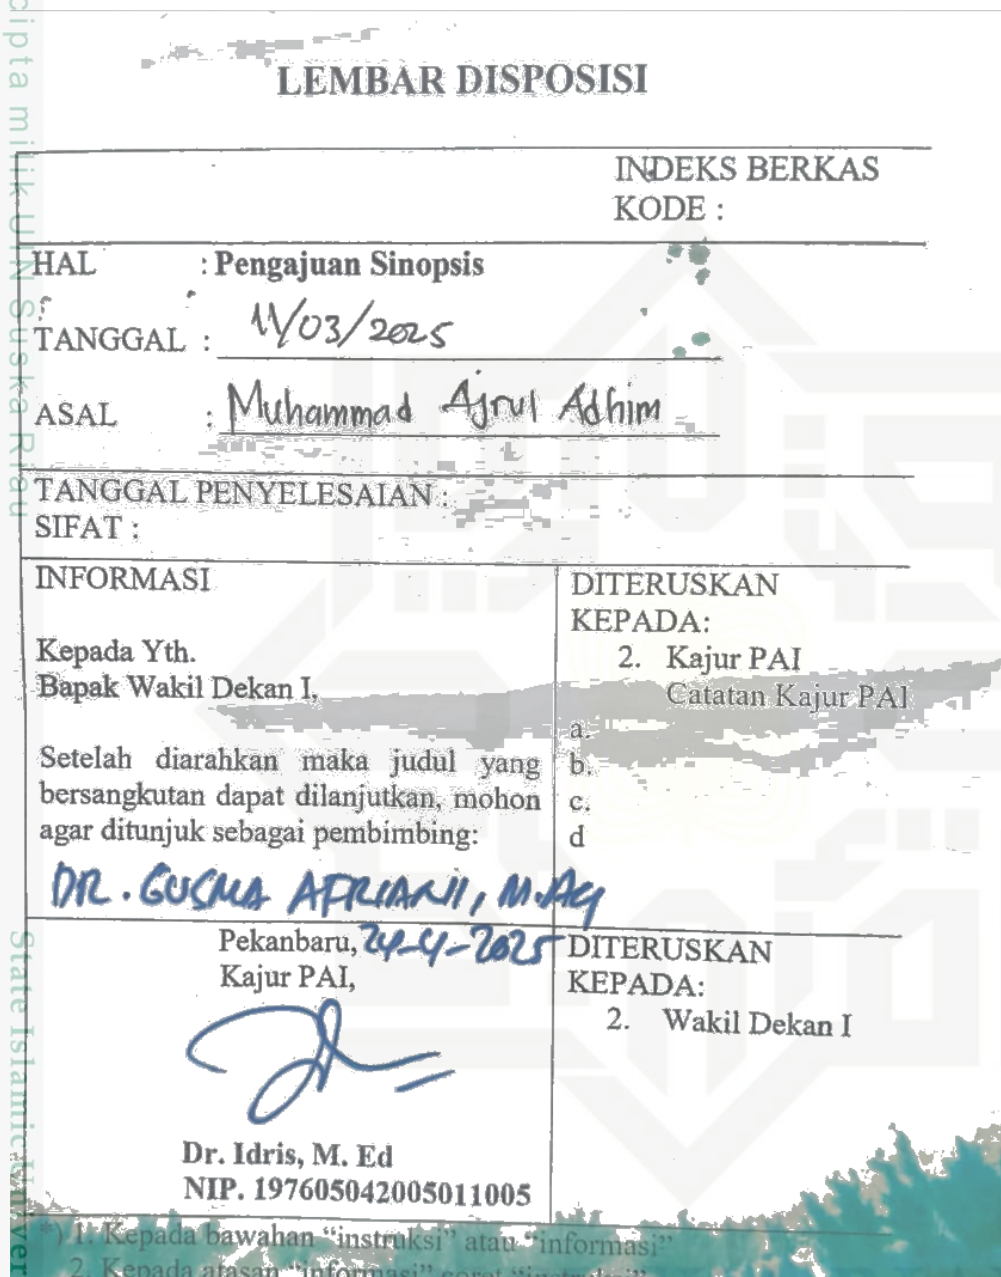 LEMBAR DISPOSISI
INDEKS BERKAS
KODE :
HAL : Pengajuan Sinopsis
TANGGAL : 11/03/2025
ASAL : Muhammad Ajrul Adhim
TANGGAL PENYELESAIAN :
SIFAT :
INFORMASI
Kepada Yth.
Bapak Wakil Dekan I,
Setelah diarahkan maka judul yang
bersangkutan dapat dilanjutkan, mohon
agar ditunjuk sebagai pembimbing:
DR. GUSMA AFRIANI, M.Ag
DITERUSKAN
KEPADA:
2. Kajur PAI
Catatan Kajur PAI
a.
b.
c.
d
Pekanbaru, 24-4-2025
Kajur PAI,
Dr. Idris, M. Ed
NIP. 197605042005011005
DITERUSKAN
KEPADA:
2. Wakil Dekan I
*) 1. Kepada bawahan “instruksi” atau “informasi”
2. Kepada atasan “informasi” coret “instruksi”
cipta milik UIN Suska Riau
State Islamic Univer